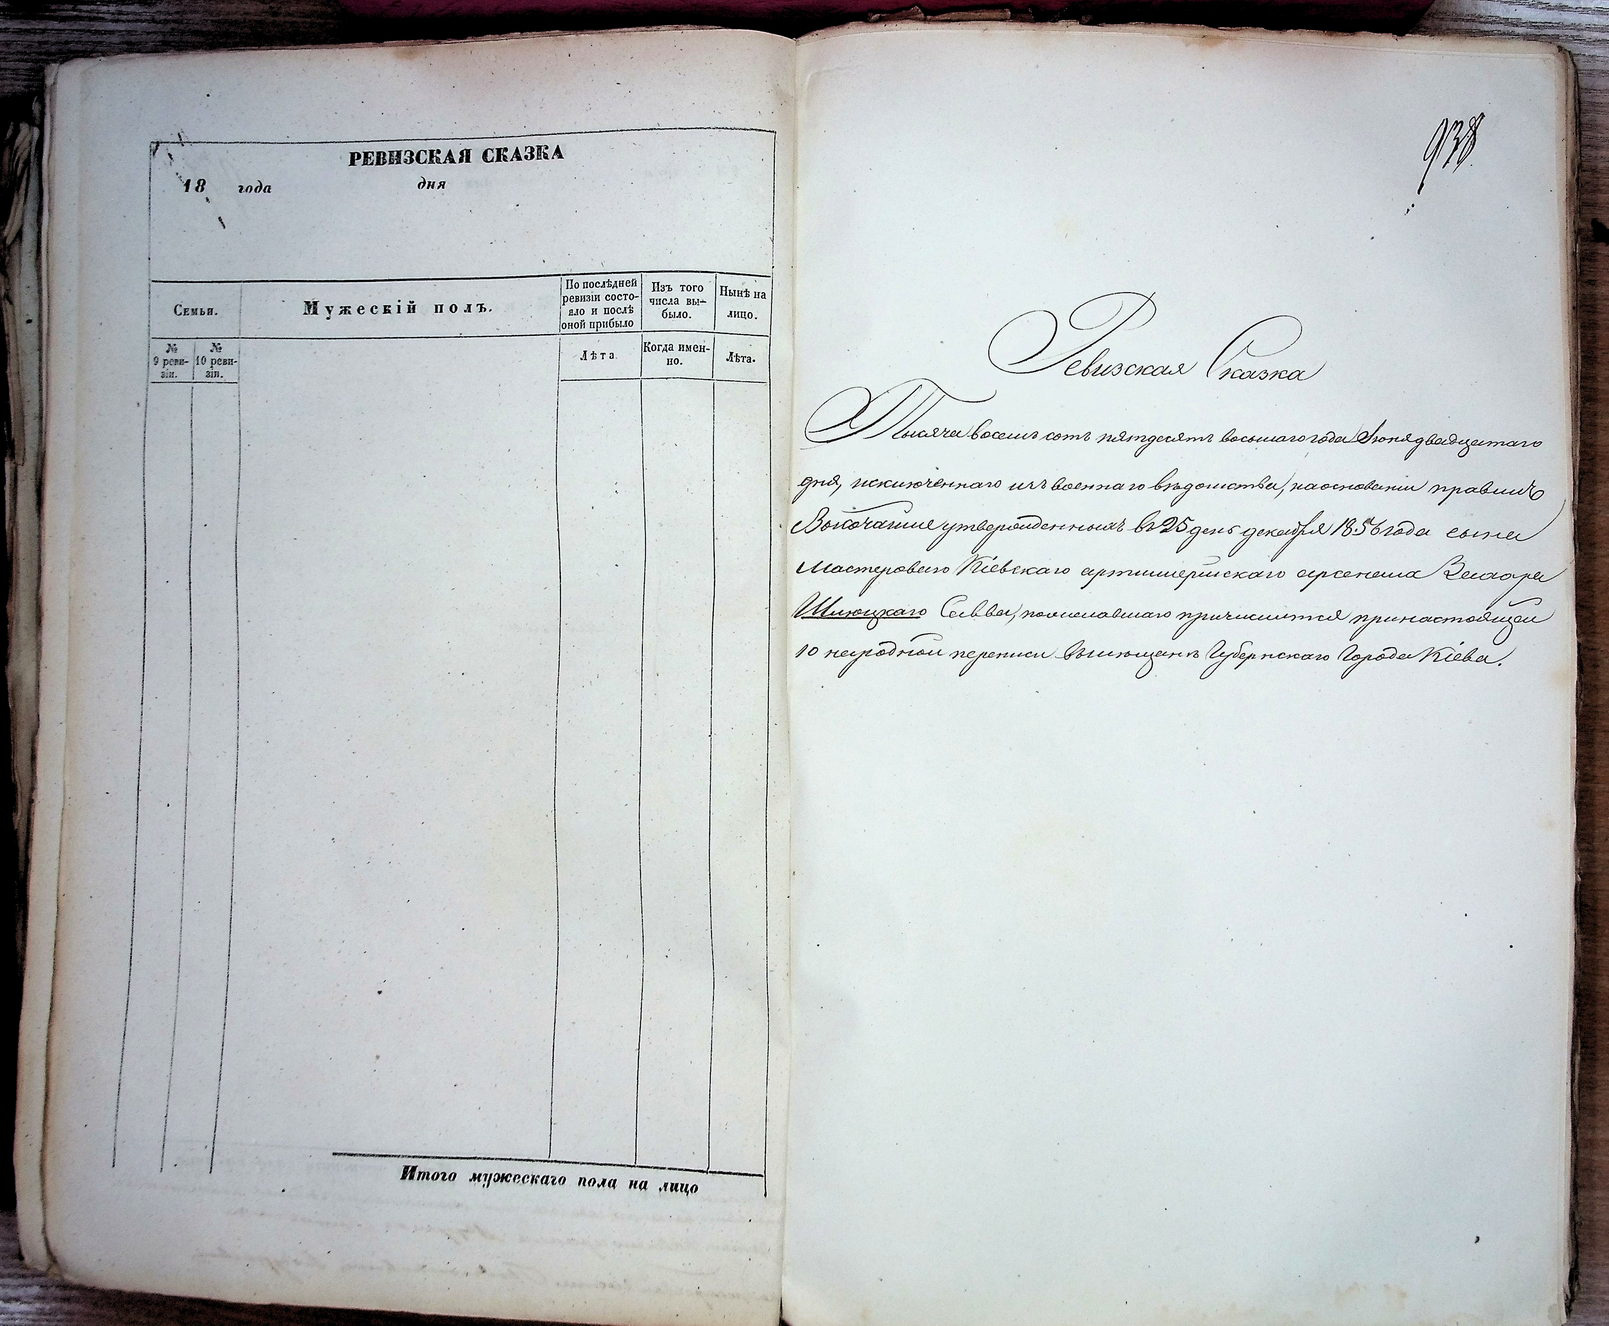 РЕВИЗСКАЯ СКАЗКА
18 года дня
Семьи.
Мужескій полъ.
По послѣдней
ревизіи состо-
яло и послѣ
оной прибыло
Изъ того
числа вы-
было.
Нынѣ на
лицо.
№
9 реви-
зіи.
№
10 реви-
зіи.
Лѣта
Когда имен-
но.
Лѣта.
Итого мужескаго пола на лицо
938
Ревизская Сказка
Тысяча восемь сотъ пятдесятъ восьмаго года Іюня двадцатаго
дня, исключеннаго изъ военнаго вѣдомства, на основаніи правилъ
Высочайше утвержденныхъ въ 25 день декабря 1856 года сына
Мастероваго Кіевскаго артиллерійскаго арсенала
Шлюцкаго Саввы, пожелавшаго причислится при настоящей
10 народной переписи въ мющанъ Губернскаго Города Кіева.